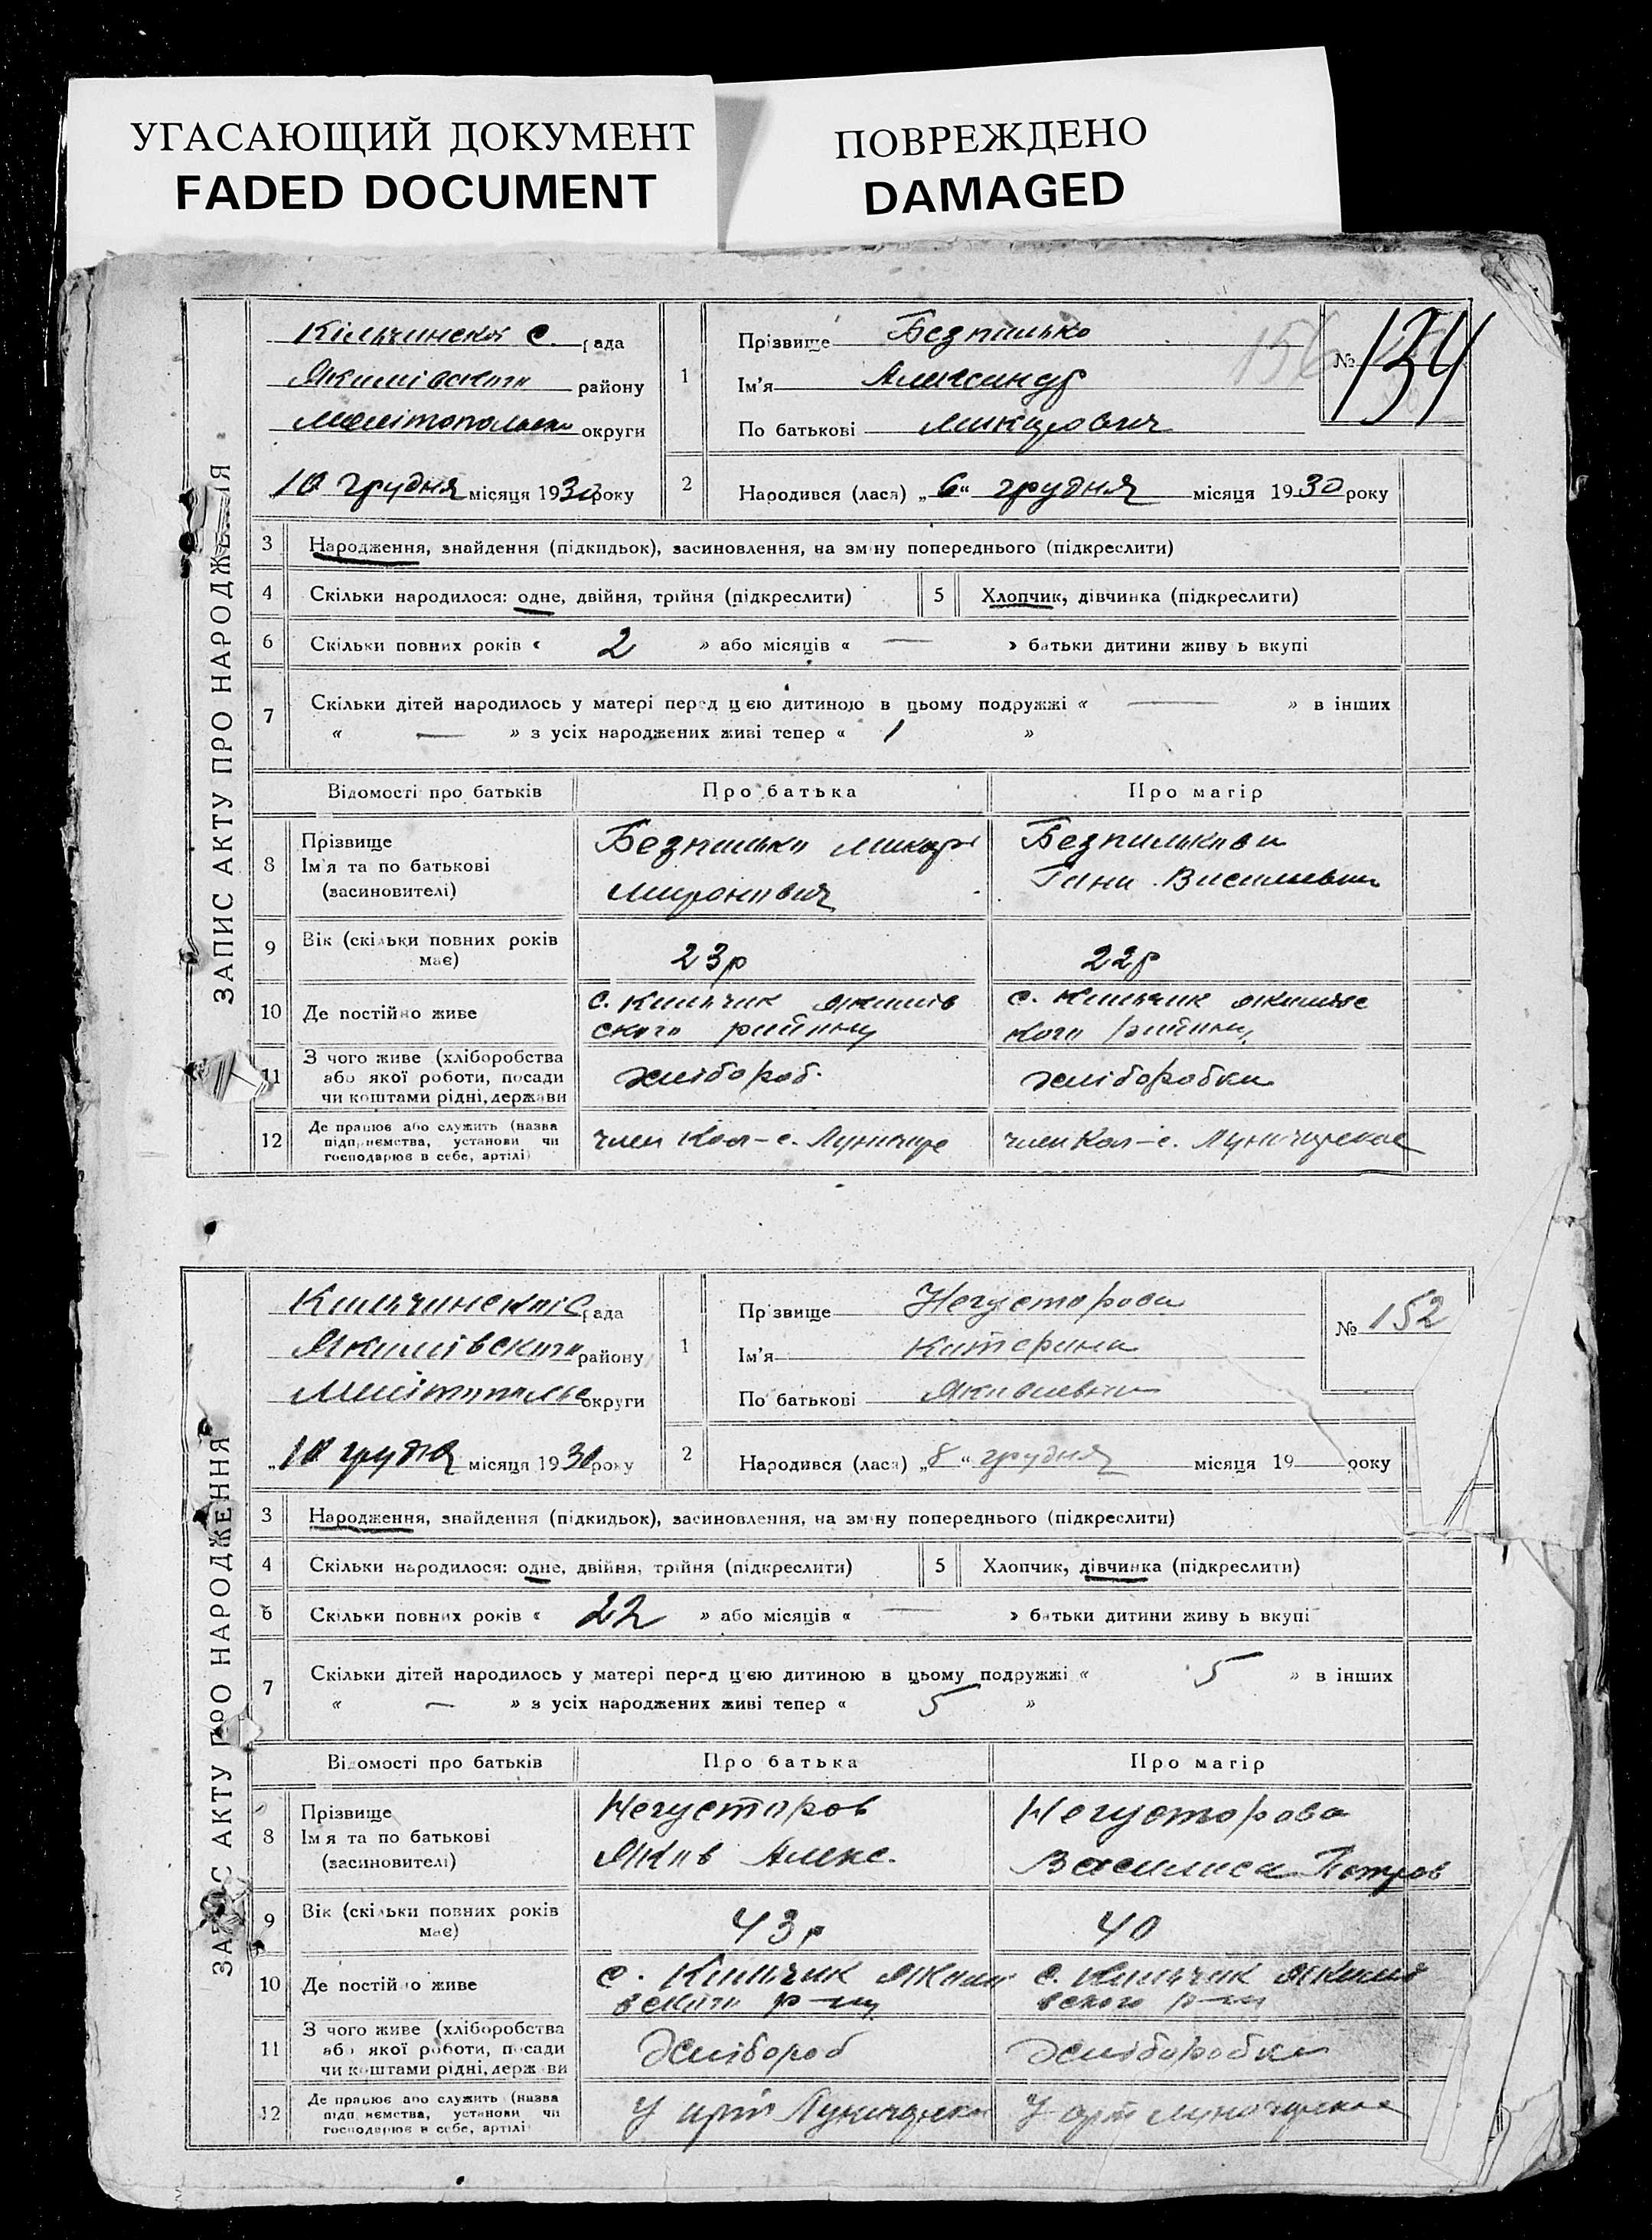 УГАСАЮЩИЙ ДОКУМЕНТ
FADED DOCUMENT
ПОВРЕЖДЕНО
DAMAGED
ЗАПИС АКТУ ПРО НАРОДЖЕННЯ
Кільчинской с. рада
Якимівского району
Мелітопольско округи
10 грудня місяця 1930 року
1
Прізвище Безпалько
Ім'я Александр
По батькові
156
№ 134
2
Народився (лася) „6“ грудня місяця 1930 року
3 Народження, знайдення (підкидьок), засиновлення, на зміну попереднього (підкреслити)
4 Скільки народилося: одне, двійня, трійня (підкреслити) 5 Хлопчик, дівчинка (підкреслити)
6 Скільки повних років « 2 » або місяців « — » батьки дитини живуть вкупі
7 Скільки дітей народилось у матері перед цією дитиною в цьому подружжі « — » в інших
« — » з усіх народжених живі тепер « 1 »
Відомості про батьків Про батька Про матір
8 Прізвище
Ім'я та по батькові
(засиновителі)
Миронович
Гана Васильевна
9 Вік (скільки повних років має) 23р 22р
10 Де постійно живе
с. Кильчик Якимів
ского району
с. Кильчик Якимівс
кого району
11 З чого живе (хліборобства
або якої роботи, посади
чи коштами рідні, держави
хлібороб. хліборобка
12 Де працює або служить (назва
підприємства, установи чи
господарює в себе, артілі)
член Кол-с. член Кол-с.
ЗАПИС АКТУ ПРО НАРОДЖЕННЯ
Кильчинскоі с рада
Якимівского району
Мелітопольс округи
„10 грудня місяця 1930 року
1
Прізвище Негусторова
Ім'я Катерина
По батькові Яковлевна
№ 152
2
Народився (лася) „8“ грудня місяця 19 року
3 Народження, знайдення (підкидьок), засиновлення, на зміну попереднього (підкреслити)
4 Скільки народилося: одне, двійня, трійня (підкреслити) 5 Хлопчик, дівчинка (підкреслити)
6 Скільки повних років « 22 » або місяців « — » батьки дитини живуть вкупі
7 Скільки дітей народилось у матері перед цією дитиною в цьому подружжі « 5 » в інших
« — » з усіх народжених живі тепер « 5 »
Відомості про батьків Про батька Про матір
8 Прізвище
Ім'я та по батькові
(засиновителі)
Негусторов
Яков Алекс.
Негусторова
Василиса Петров
9 Вік (скільки повних років має) 43р 40
10 Де постійно живе
с. Кильчик Якими
вского р-ну
с. Кильчик Якими
вского р-ну
11 З чого живе (хліборобства
або якої роботи, посади
чи коштами рідні, держави
Хлібороб Хліборобка
12 Де працює або служить (назва
підприємства, установи чи
господарює в себе, артілі)
У арт У арт